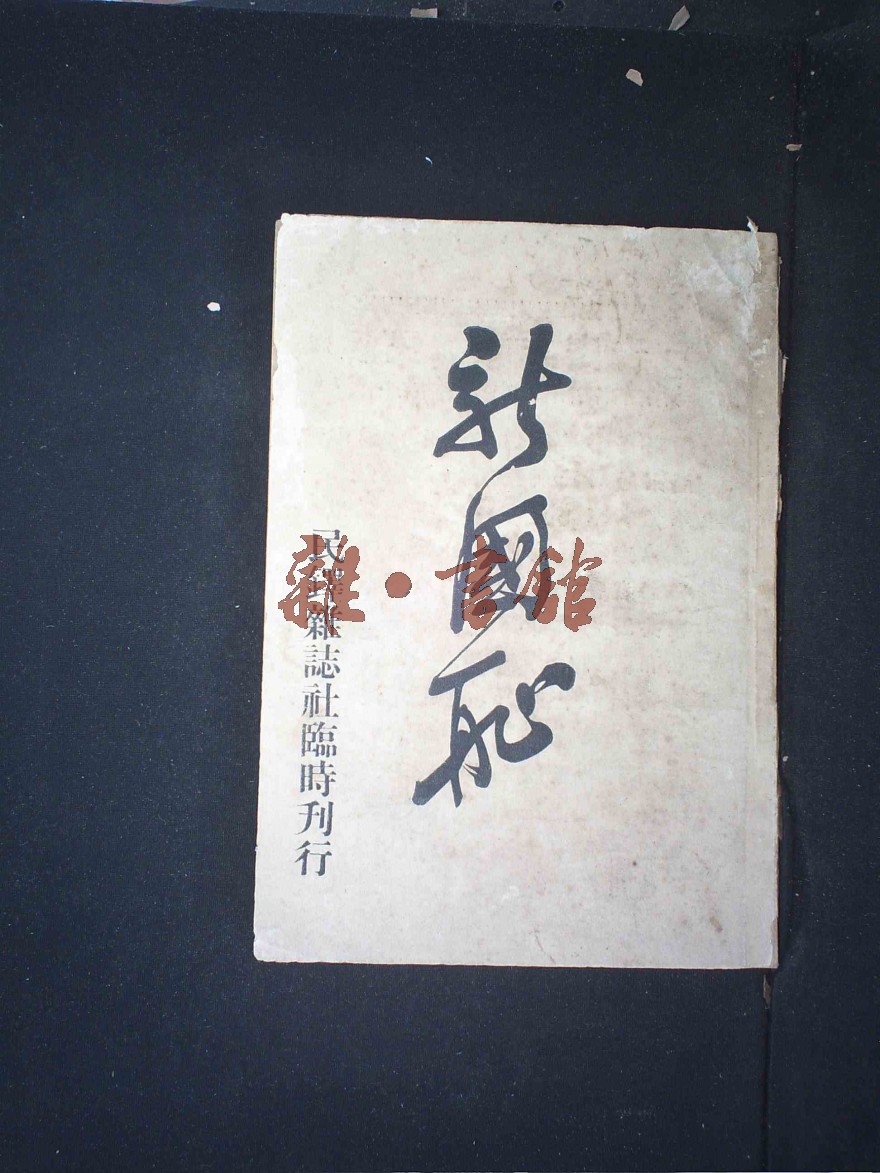 新國恥
民鐸雜誌社臨時刊行
雜·書館